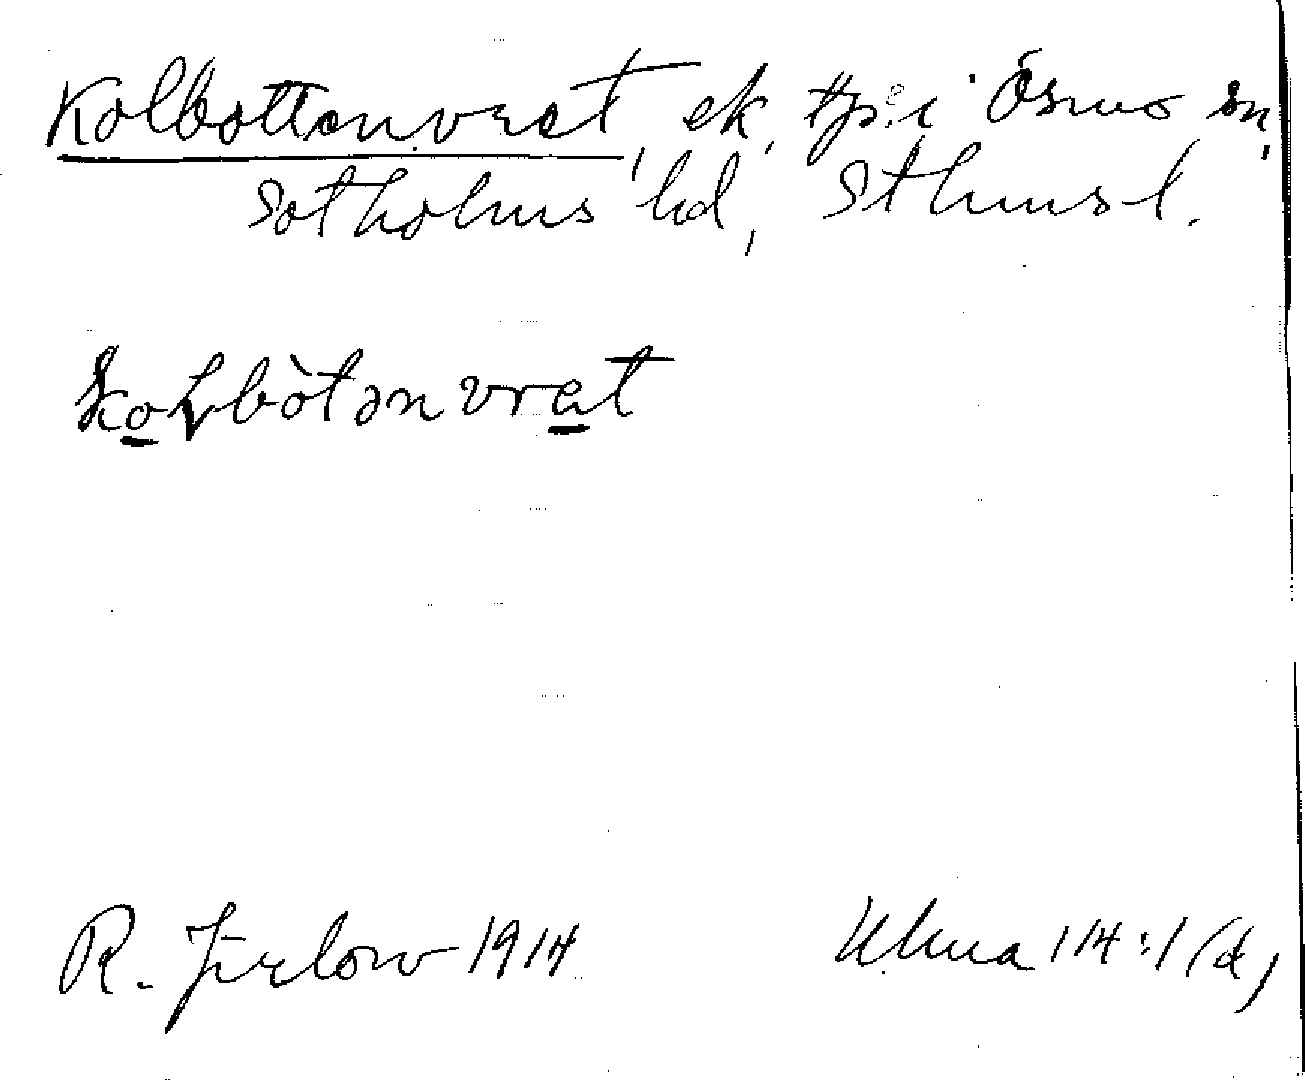 Kolbottenvret, ek, tp. i Ösmo sn,
Sotholms hd, Sthmsl.
kolbòtənvret
R. Jirlow 1914
Ulma 114:1 (d)